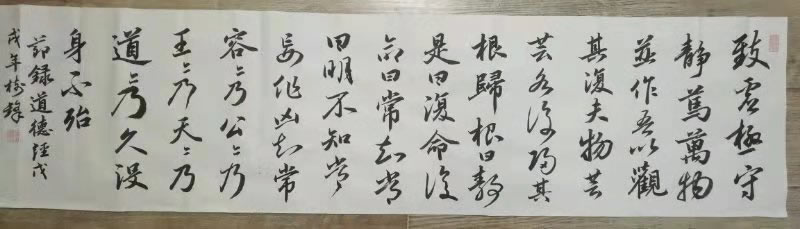 致虚極守
静篤萬物
並作吾以觀
其復夫物芸
芸各復歸其
根歸根曰静
是曰復命復
命曰常知常
曰明不知常
妄作凶知常
容〻乃公〻乃
王〻乃天〻乃
道〻乃久没
身不殆
節録道德經戊
戌年樹